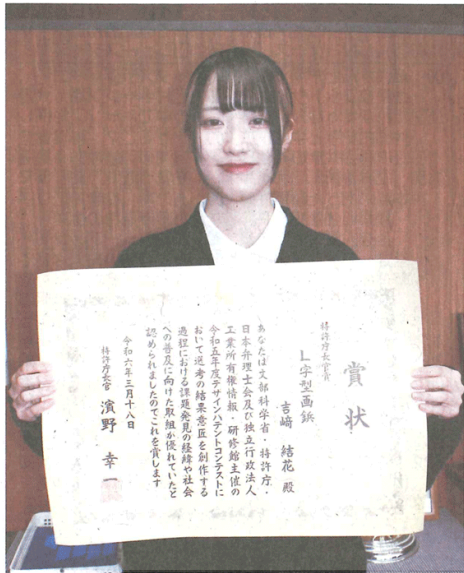 賞状
特許庁長官賞
L字型画鋲
吉﨑 結花 殿
あなたは文部科学省・特許庁・
日本弁理士会及び独立行政法人
工業所有権情報・研修館主催の
令和五年度デザインパテントコンテストに
おいて選考の結果意匠を創作する
過程における課題発見の経緯や社会
への普及に向けた取組が優れていたと
認められましたのでこれを賞します
令和六年三月十八日
特許庁長官 濱野 幸一